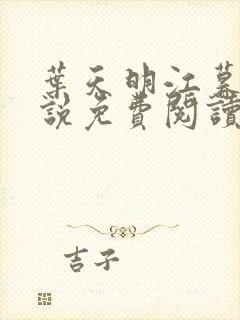 葉天明江幕
說免費閱讀
吉子